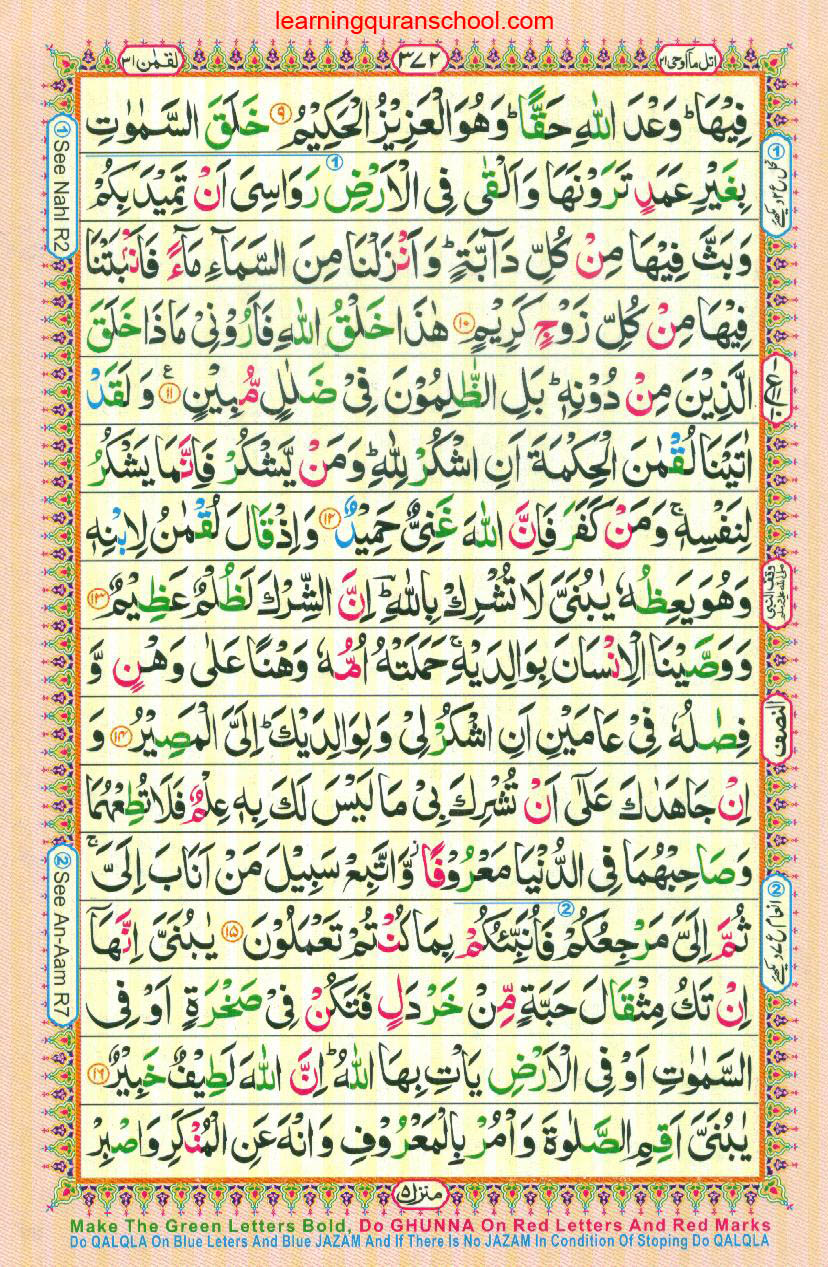 learningquranschool.com
اتل ما اوحی ۲۱
۳۷۲
لقمٰن ۳۱
فِيْهَا ؕ وَعْدَ اللّٰهِ حَقًّا ؕ وَهُوَ الْعَزِيْزُ الْحَكِيْمُ ۹ خَلَقَ السَّمٰوٰتِ
بِغَيْرِ عَمَدٍ تَرَوْنَهَا وَاَلْقٰى فِى الْاَرْضِ رَوَاسِىَ اَنْ تَمِيْدَ بِكُمْ
وَبَثَّ فِيْهَا مِنْ كُلِّ دَآبَّةٍ ؕ وَاَنْزَلْنَا مِنَ السَّمَآءِ مَآءً فَاَنْۢبَتْنَا
فِيْهَا مِنْ كُلِّ زَوْجٍ كَرِيْمٍ ۱۰ هٰذَا خَلْقُ اللّٰهِ فَاَرُوْنِىْ مَاذَا خَلَقَ
الَّذِيْنَ مِنْ دُوْنِهٖ ؕ بَلِ الظّٰلِمُوْنَ فِىْ ضَلٰلٍ مُّبِيْنٍ ۱۱ ع وَ لَقَدْ
اٰتَيْنَا لُقْمٰنَ الْحِكْمَةَ اَنِ اشْكُرْ لِلّٰهِ ؕ وَمَنْ يَّشْكُرْ فَاِنَّمَا يَشْكُرُ
لِنَفْسِهٖ ۚ وَمَنْ كَفَرَ فَاِنَّ اللّٰهَ غَنِىٌّ حَمِيْدٌ ۱۲ وَاِذْ قَالَ لُقْمٰنُ لِابْنِهٖ
وَهُوَ يَعِظُهٗ يٰبُنَىَّ لَا تُشْرِكْ بِاللّٰهِ ؔؕ اِنَّ الشِّرْكَ لَظُلْمٌ عَظِيْمٌ ۱۳
وَوَصَّيْنَا الْاِنْسَانَ بِوَالِدَيْهِ ۚ حَمَلَتْهُ اُمُّهٗ وَهْنًا عَلٰى وَهْنٍ وَّ
فِصٰلُهٗ فِىْ عَامَيْنِ اَنِ اشْكُرْ لِىْ وَلِوَالِدَيْكَ ؕ اِلَىَّ الْمَصِيْرُ ۱۴ وَ
اِنْ جَاهَدٰكَ عَلٰٓى اَنْ تُشْرِكَ بِىْ مَا لَيْسَ لَكَ بِهٖ عِلْمٌ فَلَا تُطِعْهُمَا
وَصَاحِبْهُمَا فِى الدُّنْيَا مَعْرُوْفًا ؗ وَّاتَّبِعْ سَبِيْلَ مَنْ اَنَابَ اِلَىَّ ۚ
ثُمَّ اِلَىَّ مَرْجِعُكُمْ فَاُنَبِّئُكُمْ بِمَا كُنْتُمْ تَعْمَلُوْنَ ۱۵ يٰبُنَىَّ اِنَّهَاۤ
اِنْ تَكُ مِثْقَالَ حَبَّةٍ مِّنْ خَرْدَلٍ فَتَكُنْ فِىْ صَخْرَةٍ اَوْ فِى
السَّمٰوٰتِ اَوْ فِى الْاَرْضِ يَاْتِ بِهَا اللّٰهُ ؕ اِنَّ اللّٰهَ لَطِيْفٌ خَبِيْرٌ ۱۶
يٰبُنَىَّ اَقِمِ الصَّلٰوةَ وَاْمُرْ بِالْمَعْرُوْفِ وَانْهَ عَنِ الْمُنْكَرِ وَاصْبِرْ
النصف
1 See Nahl R2
2 See An-Aam R7
منزل ۵
Make The Green Letters Bold, Do GHUNNA On Red Letters And Red Marks
Do QALQLA On Blue Leters And Blue JAZAM And If There Is No JAZAM In Condition Of Stoping Do QALQLA